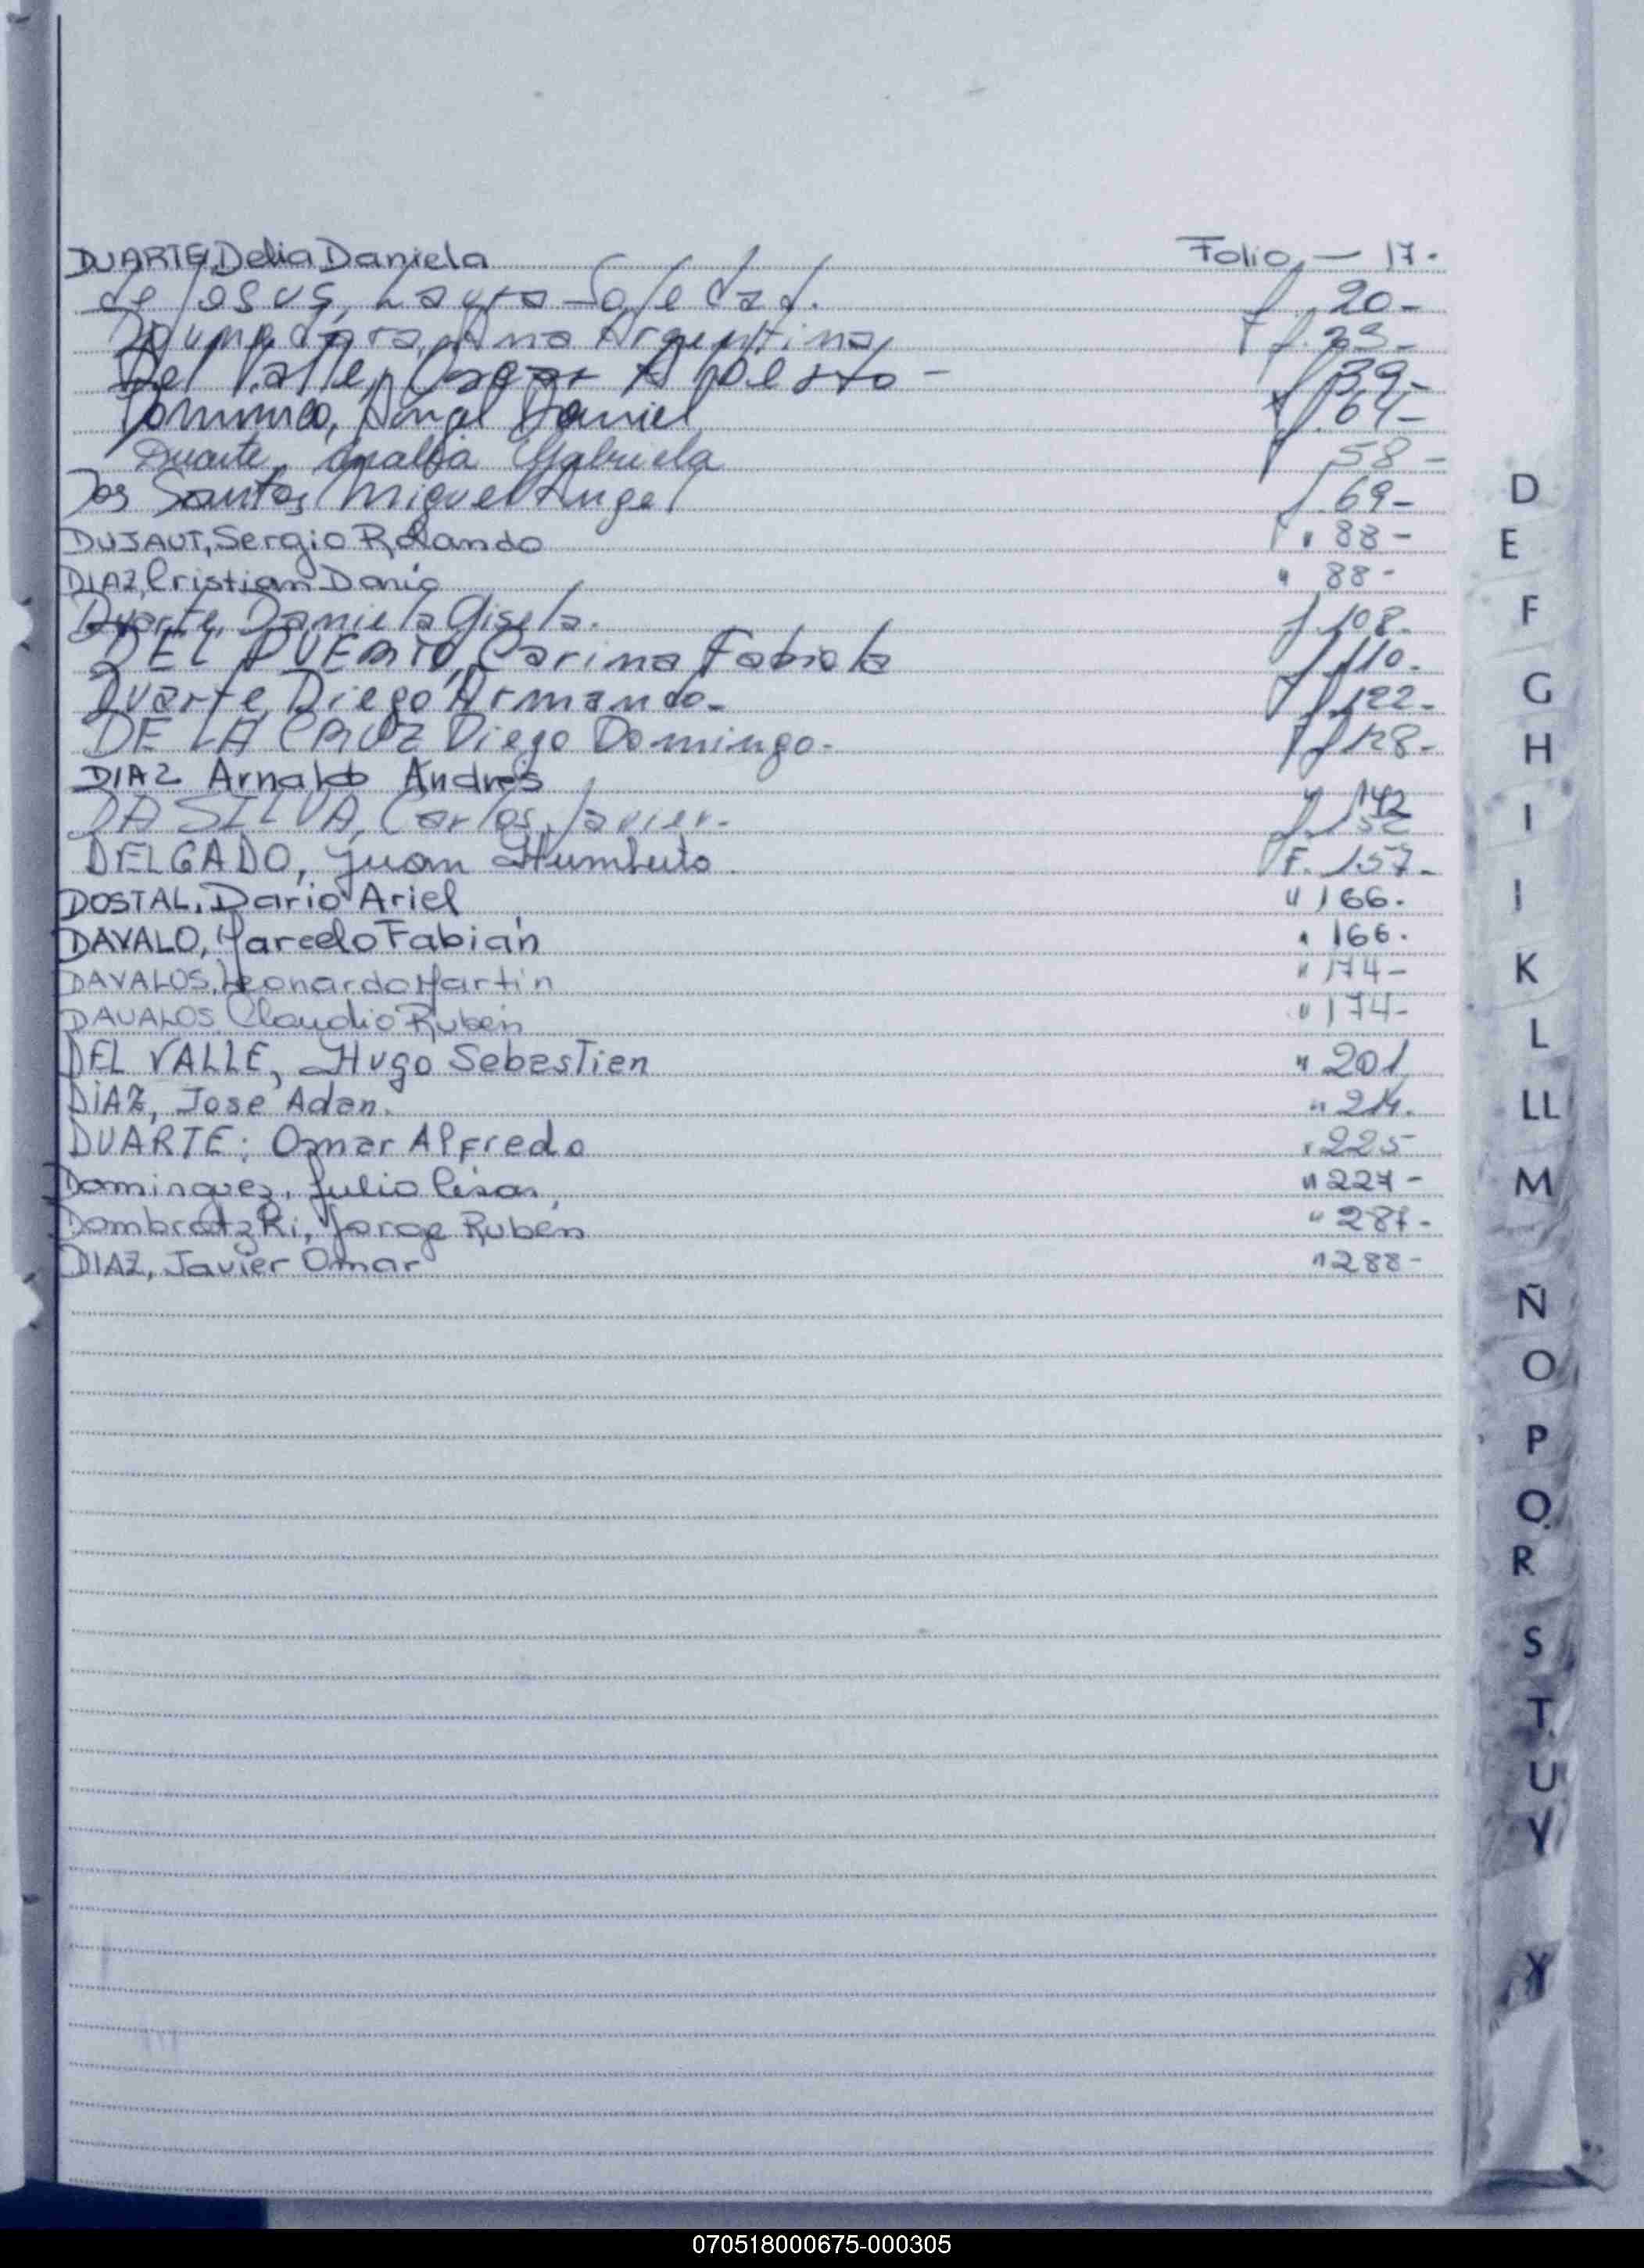 DUARTE, Delia Daniela Folio, — 17.
de Jesus, Laura Soledad. f. 20-
Ana Argentina, f. 23-
Del Valle, Oscar Alberto - f. 39-
Daniel f. 64-
Duarte, Analia Gabriela f 58-
Dos Santos Miguel Angel f. 69-
DUJAUT, Sergio Rolando " 88-
DIAZ, Cristian Dario " 88-
Duarte, Daniela Gisela. f. 108-
DEL PUERTO, Carina Fabiola f. 110-
Duarte, Diego Armando- f. 122-
DE LA CRUZ Diego Domingo- f. 128-
DIAZ Arnaldo Andres " 142
DA SILVA, Carlos Javier- f.
DELGADO, Juan Humberto. F. 157-
DOSTAL, Dario Ariel " 166.
DAVALO, Marcelo Fabián " 166.
DAVALOS, Leonardo Martín " 174-
DAVALOS, Claudio Rubén " 174-
DEL VALLE, Hugo Sebastien " 201
DIAZ, José Adan. " 214.
DUARTE; Omar Alfredo " 225
Dominguez, Julio César, " 227-
Dombratzki, Jorge Rubén " 287-
DIAZ, Javier Omar " 288-
D
E
F
G
H
I
I
K
L
LL
M
Ñ
O
P
Q
R
S
T
U
Y
070518000675-000305